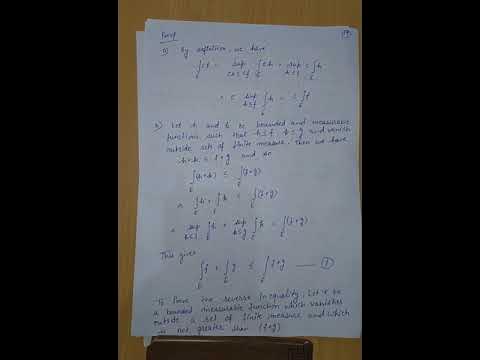 Proof
a) By definition, we have
∫_E cf = sup_{ch≤cf} ∫_E ch = sup_{h≤f} c∫_E h
= c sup_{h≤f} ∫_E h = c ∫_E f
b) Let h and k be bounded and measurable
functions such that h≤f, k≤g and vanish
outside sets of finite measure. Then we have
h+k ≤ f+g and so
∫_E (h+k) ≤ ∫_E (f+g)
∫_E h + ∫_E k ≤ ∫_E (f+g)
sup_{h≤f} ∫_E h + sup_{k≤g} ∫_E k ≤ ∫_E (f+g)
This gives
∫_E f + ∫_E g ≤ ∫_E f+g — ①
To prove the reverse inequality, Let be
a bounded measurable function which vanishes
outside a set of finite measure and which
is not greater than (f+g)